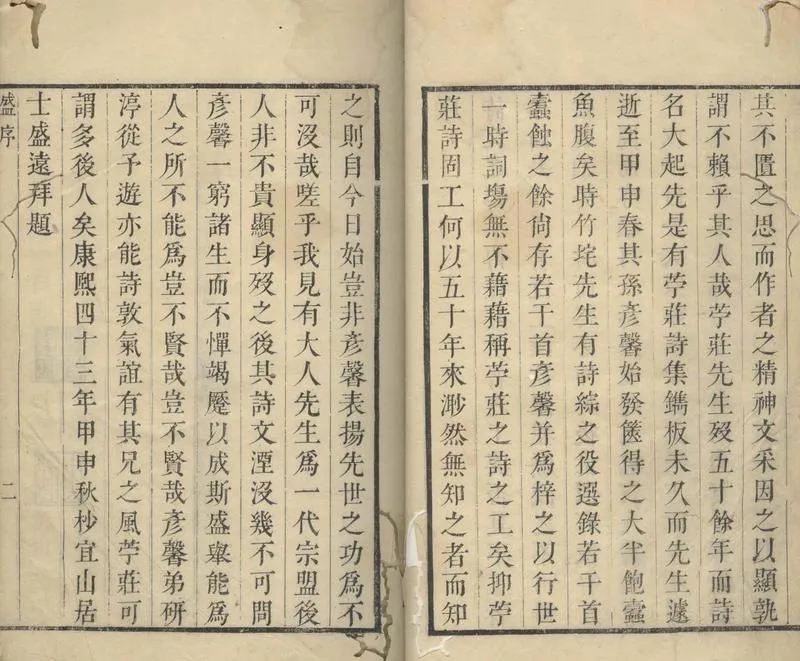 其不匱之思而作者之精神文采因之以顯孰
謂不賴乎其人哉苧莊先生歿五十餘年而詩
名大起先是有苧莊詩集鐫板未久而先生遽
逝至甲申春其孫彥馨始發篋得之大半飽蠹
魚腹矣時竹垞先生有詩綜之役選錄若干首
蠹蝕之餘尙存若干首彥馨并爲梓之以行世
一時詞場無不藉藉稱苧莊之詩之工矣抑苧
莊詩固工何以五十年來渺然無知之者而知
之則自今日始豈非彥馨表揚先世之功爲不
可沒哉嗟乎我見有大人先生爲一代宗盟後
人非不貴顯身歿之後其詩文湮沒幾不可問
彥馨一窮諸生而不憚竭蹷以成斯盛舉能爲
人之所不能爲豈不賢哉豈不賢哉彥馨弟硏
渟從予遊亦能詩敦氣誼有其兄之風苧莊可
謂多後人矣康熙四十三年甲申秋杪宜山居
士盛遠拜題
盛序
二